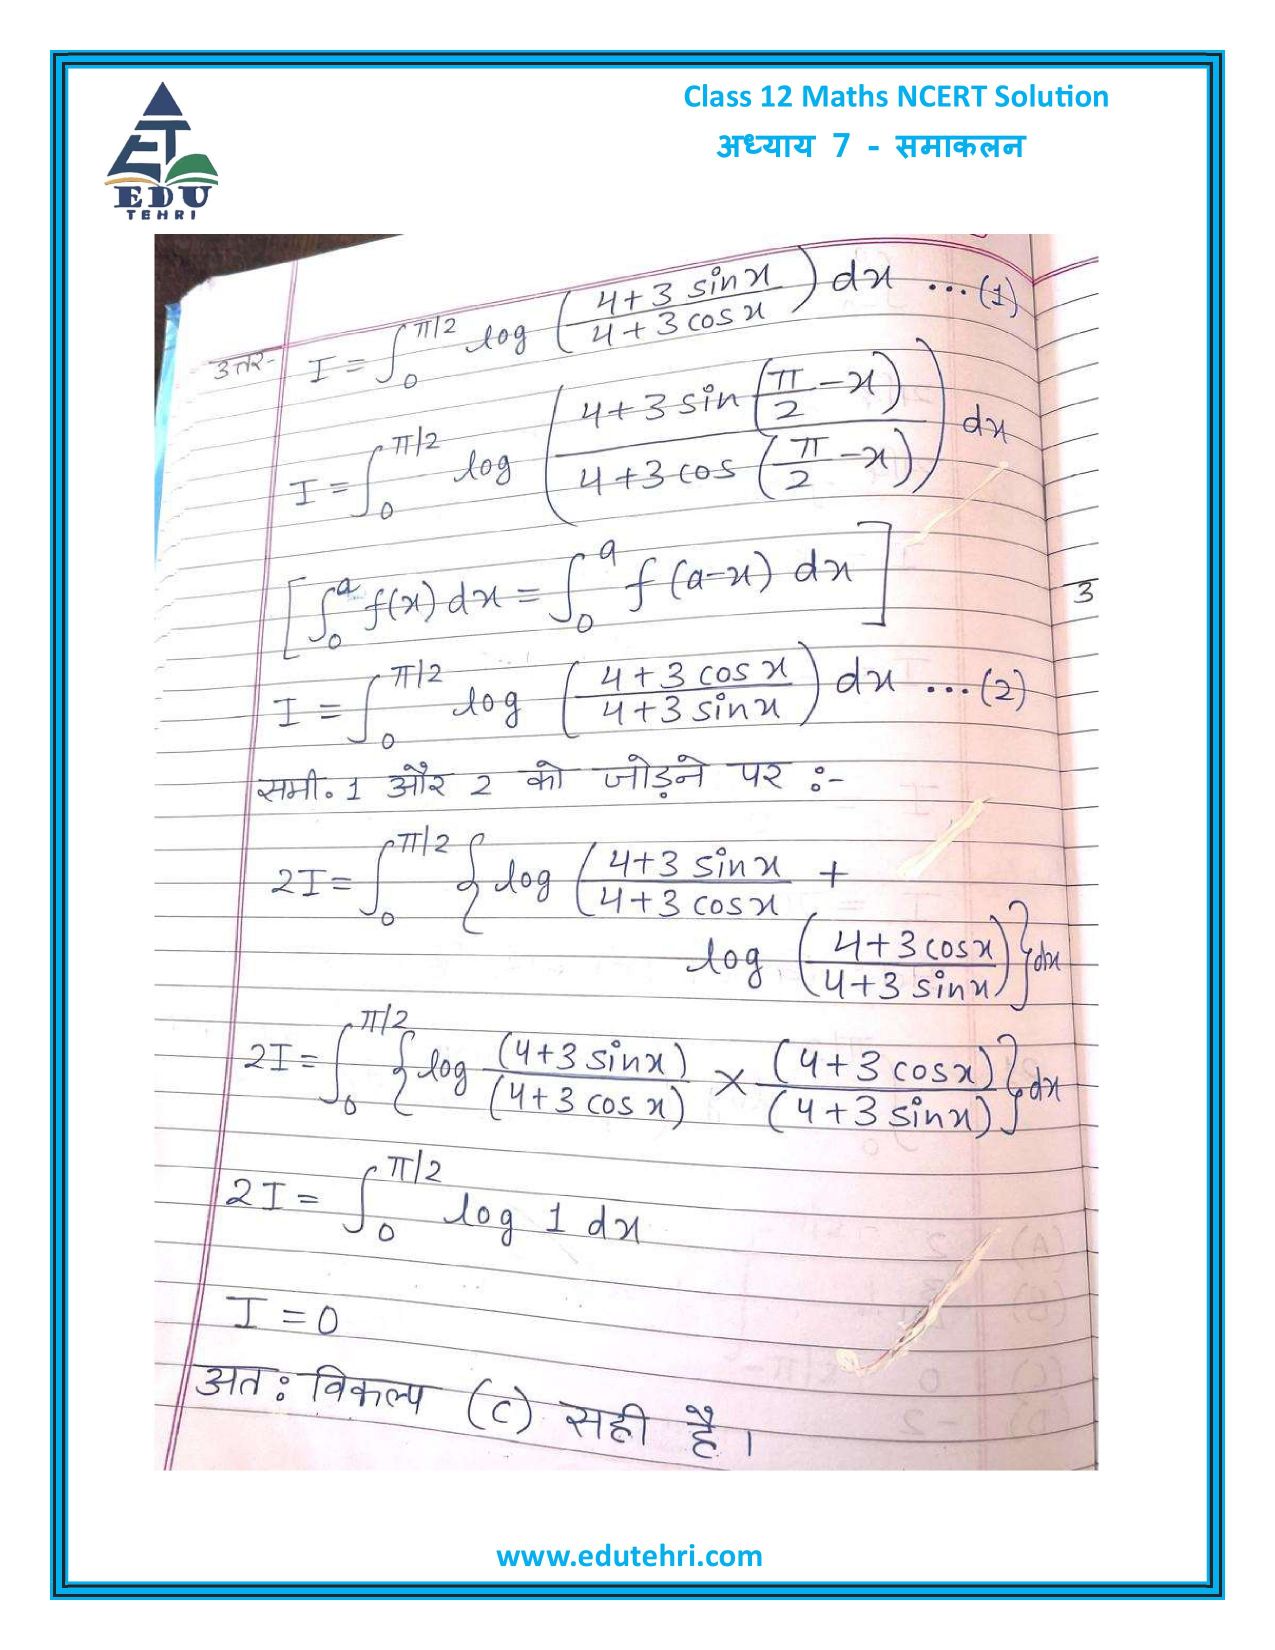 Class 12 Maths NCERT Solution
अध्याय 7 - समाकलन
EDU
TEHRI
उत्तर- I = ∫₀^π/2 log ((4+3 sinx)/(4+3 cosx)) dx ...(1)
I = ∫₀^π/2 log ((4+3 sin(π/2 - x))/(4+3 cos(π/2 - x))) dx
[∫₀^a f(x) dx = ∫₀^a f(a-x) dx]
3
I = ∫₀^π/2 log ((4+3 cosx)/(4+3 sinx)) dx ...(2)
समी. 1 और 2 को जोड़ने पर :-
2I = ∫₀^π/2 { log ((4+3 sinx)/(4+3 cosx) +
log ((4+3 cosx)/(4+3 sinx)) } dx
2I = ∫₀^π/2 { log (4+3 sinx)/(4+3 cosx) × (4+3 cosx)/(4+3 sinx) } dx
2I = ∫₀^π/2 log 1 dx
I = 0
अतः विकल्प (C) सही है।
www.edutehri.com